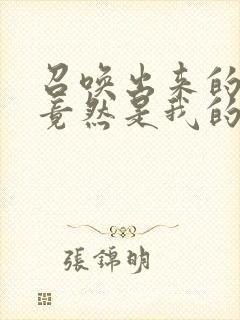 召唤出来的
竟然是我的
張錦明